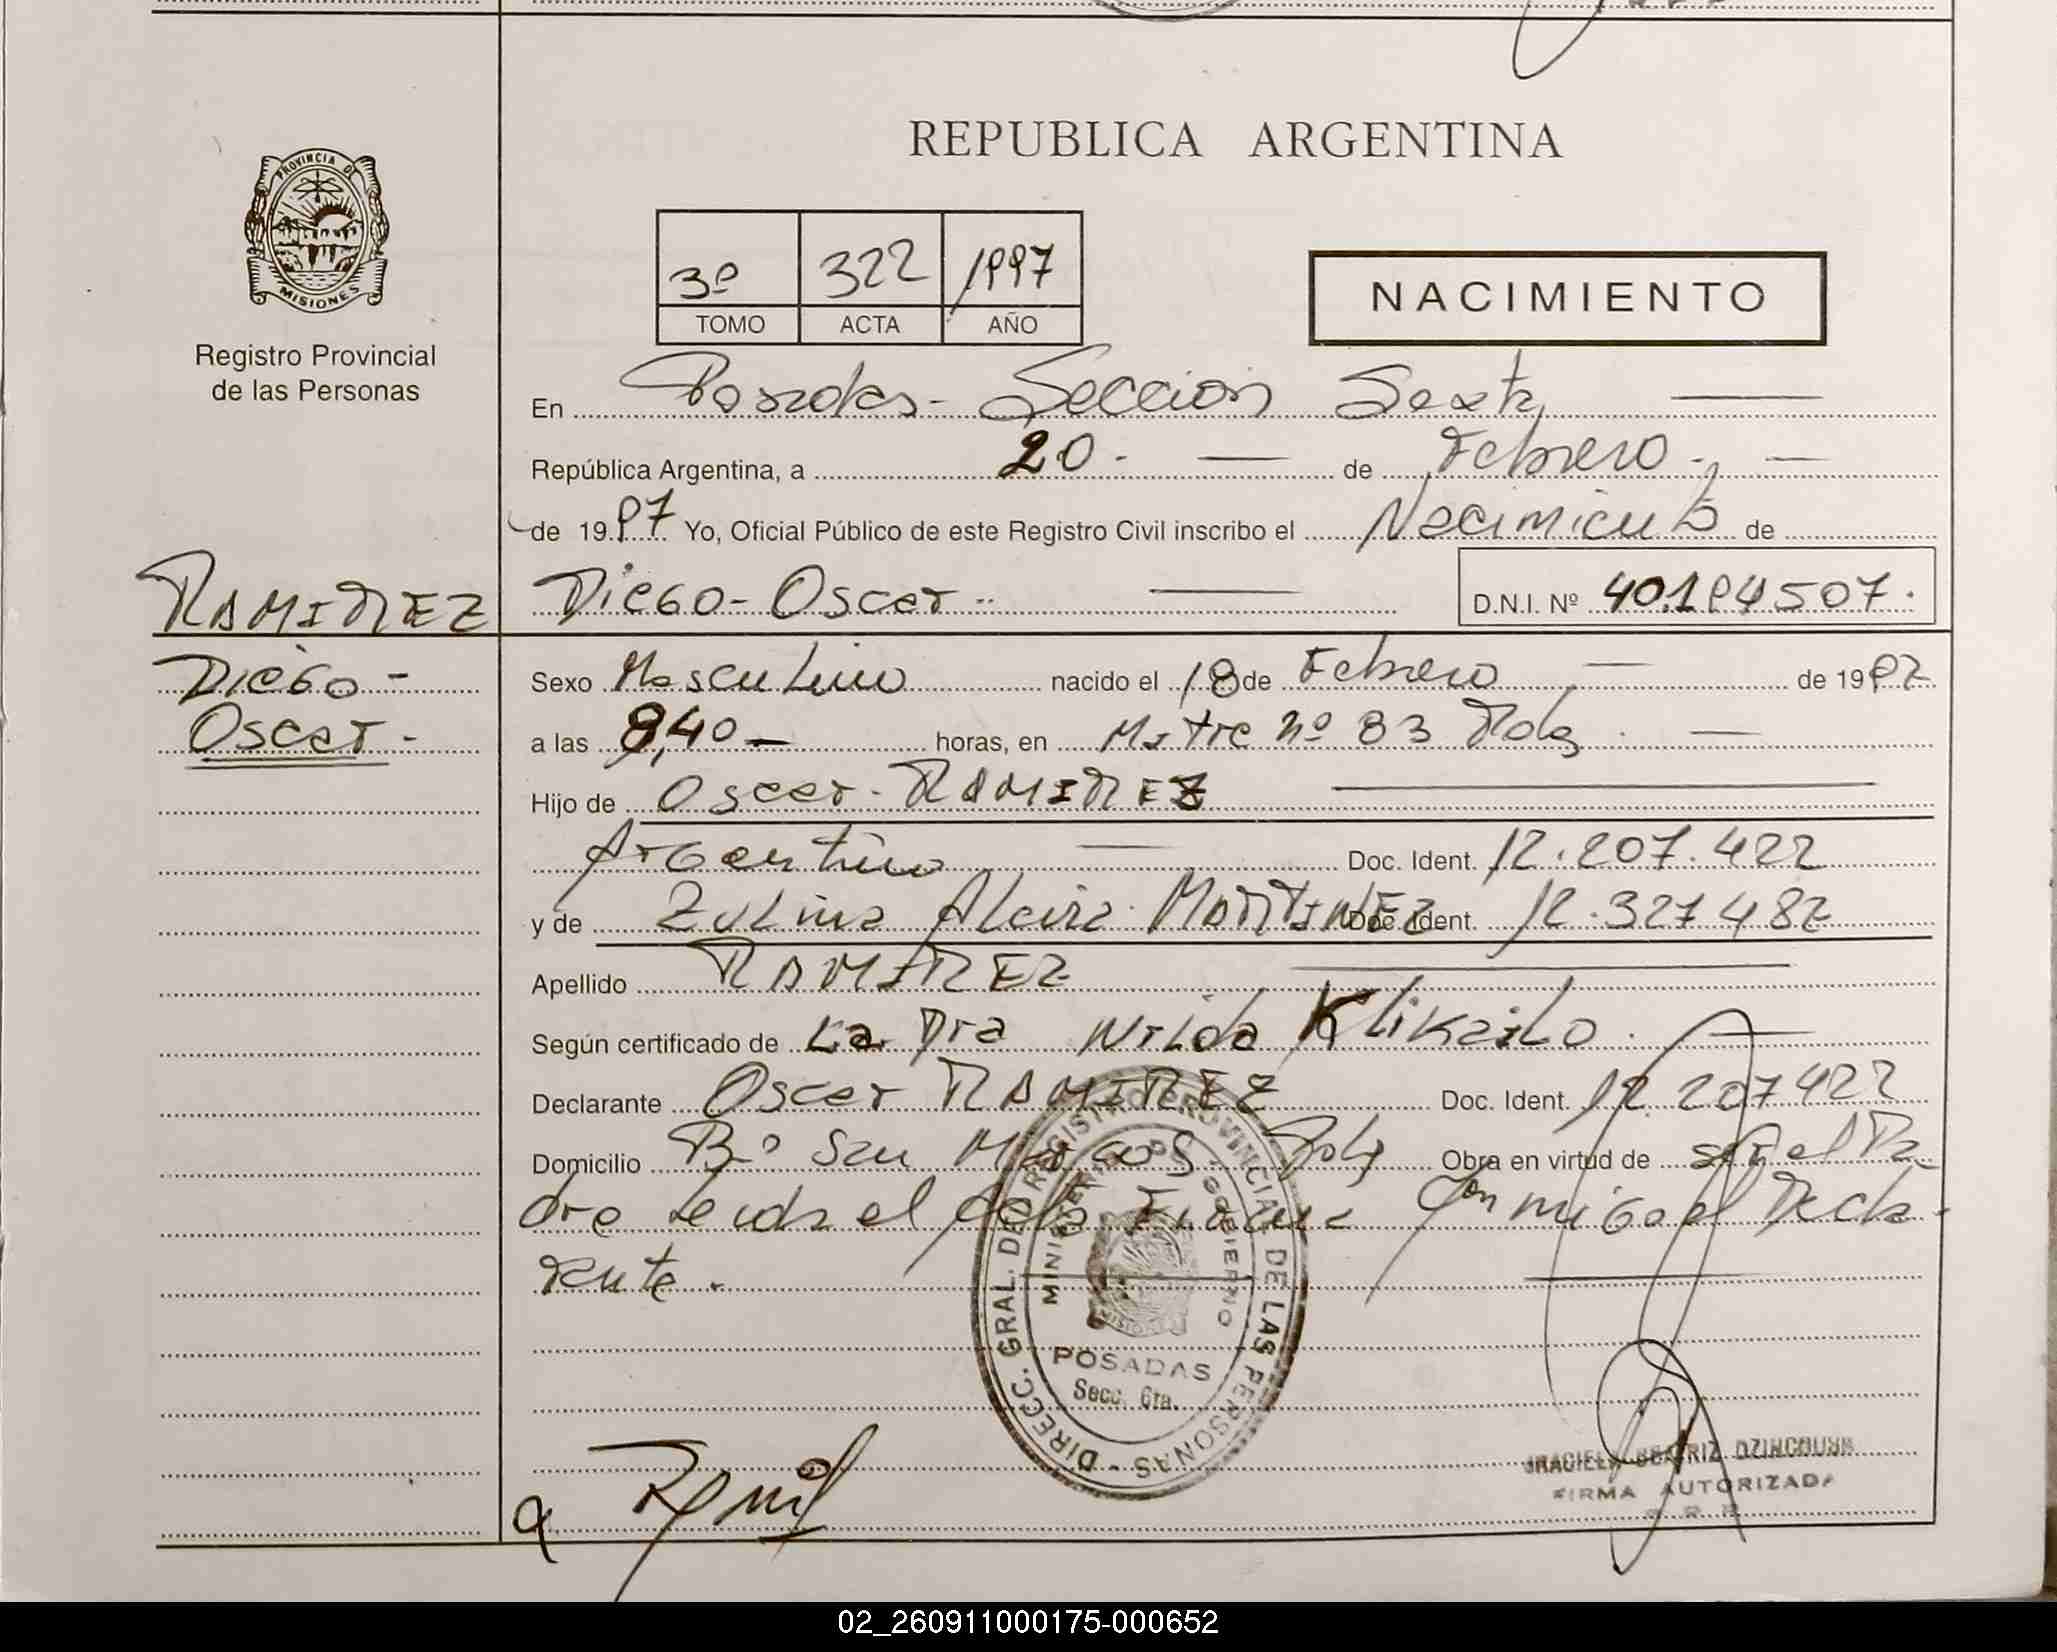 REPUBLICA ARGENTINA
PROVINCIA DE
MISIONES
Registro Provincial
de las Personas
3º 322 1997
TOMO ACTA AÑO
NACIMIENTO
En Posadas - Sección Sexta
República Argentina, a 20 - de Febrero -
de 1997 Yo, Oficial Público de este Registro Civil inscribo el Nacimiento de
RAMIREZ Diego - Oscar - D.N.I. Nº 40.194507.
Diego -
Oscar -
Sexo Masculino nacido el 18 de Febrero de 1997
a las 8,40 horas, en Mitre nº 83 Pdas
Hijo de Oscar - RAMIREZ
Argentino Doc. Ident. 12.207.422
y de Zulma Alcira MARTINEZ Doc. Ident. 12.327482
Apellido RAMIREZ
Según certificado de La Dra Nilda Klikailo.
Declarante Oscar RAMIREZ Doc. Ident. 12.207422
Domicilio Bº San Marcos Pdas Obra en virtud de ser el Pa-
dre leida el acta Firma Conmigo el Decla-
rante.
DIRECC. GRAL. DE REGISTRO PROVINCIAL DE LAS PERSONAS
MINISTERIO DE GOBIERNO
MISIONES
POSADAS
Secc. 6ta.
GRACIELA BEATRIZ
FIRMA AUTORIZADA
02_260911000175-000652